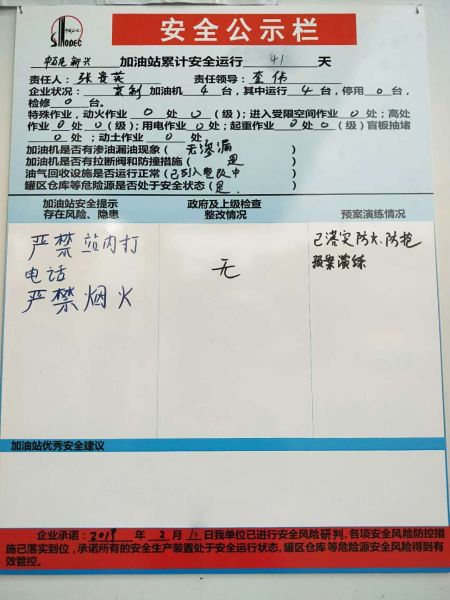 SINOPEC 安全公示栏
新兴 加油站累计安全运行 41 天
责任人：张贵英 责任领导：李伟
企业状况： 加油机 4 台，其中运行 4 台，停用 0 台，
检修 0 台。
特殊作业，动火作业 0 处 0 （级）；进入受限空间作业 0 处；高处
作业 0 处 0 （级）；用电作业 0 处；起重作业 0 处 0 （级）盲板抽堵
0 处；动土作业 0 处；
加油机是否有渗油漏油现象（ 无渗漏 ）
加油机是否有拉断阀和防撞措施（ 是 ）
油气回收设施是否运行正常（已列入 改中 ）
罐区仓库等危险源是否处于安全状态（是． ）
加油站安全提示
存在风险、隐患
政府及上级检查
整改情况
预案演练情况
严禁站内打
电话
严禁烟火
无
已落实防火、防抢
预案演练
加油站优秀安全建议
企业承诺：2019 年 2 月 日我单位已进行安全风险研判，各项安全风险防控措
施已落实到位，承诺所有的安全生产装置处于安全运行状态，罐区仓库等危险源安全风险得到有
效管控。